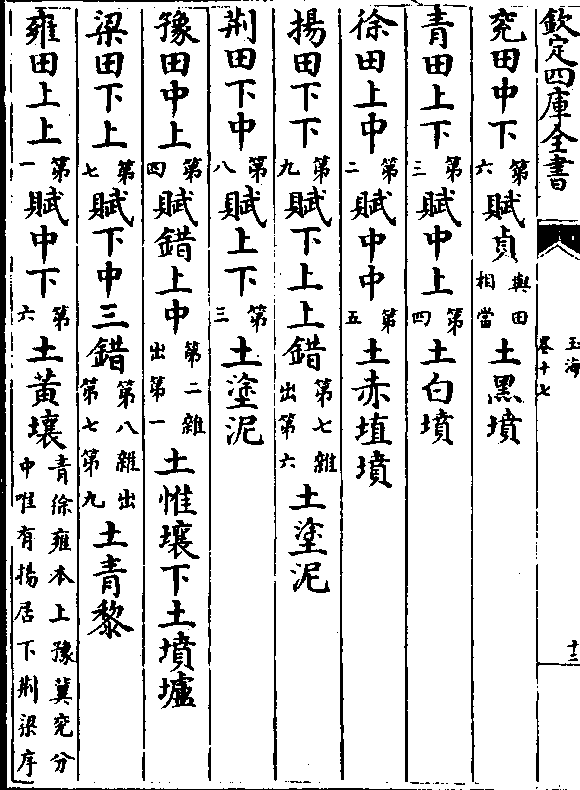 欽定四庫全書
玉海
卷十七
兖田中下第六賦貞與田相當土黑墳
青田上下第三賦中上第四土白墳
徐田上中第二賦中中第五土赤埴墳
揚田下下第九賦下上上錯第七雜出第六土塗泥
荆田下中第八賦上下第三土塗泥
豫田中上第四賦錯上中第二雜出第一土惟壤下土墳壚
梁田下上第七賦下中三錯第八雜出第七第九土青黎
雍田上上第一賦中下第六土黃壤青徐雍本上豫冀兖分中唯有揚居下荆梁序